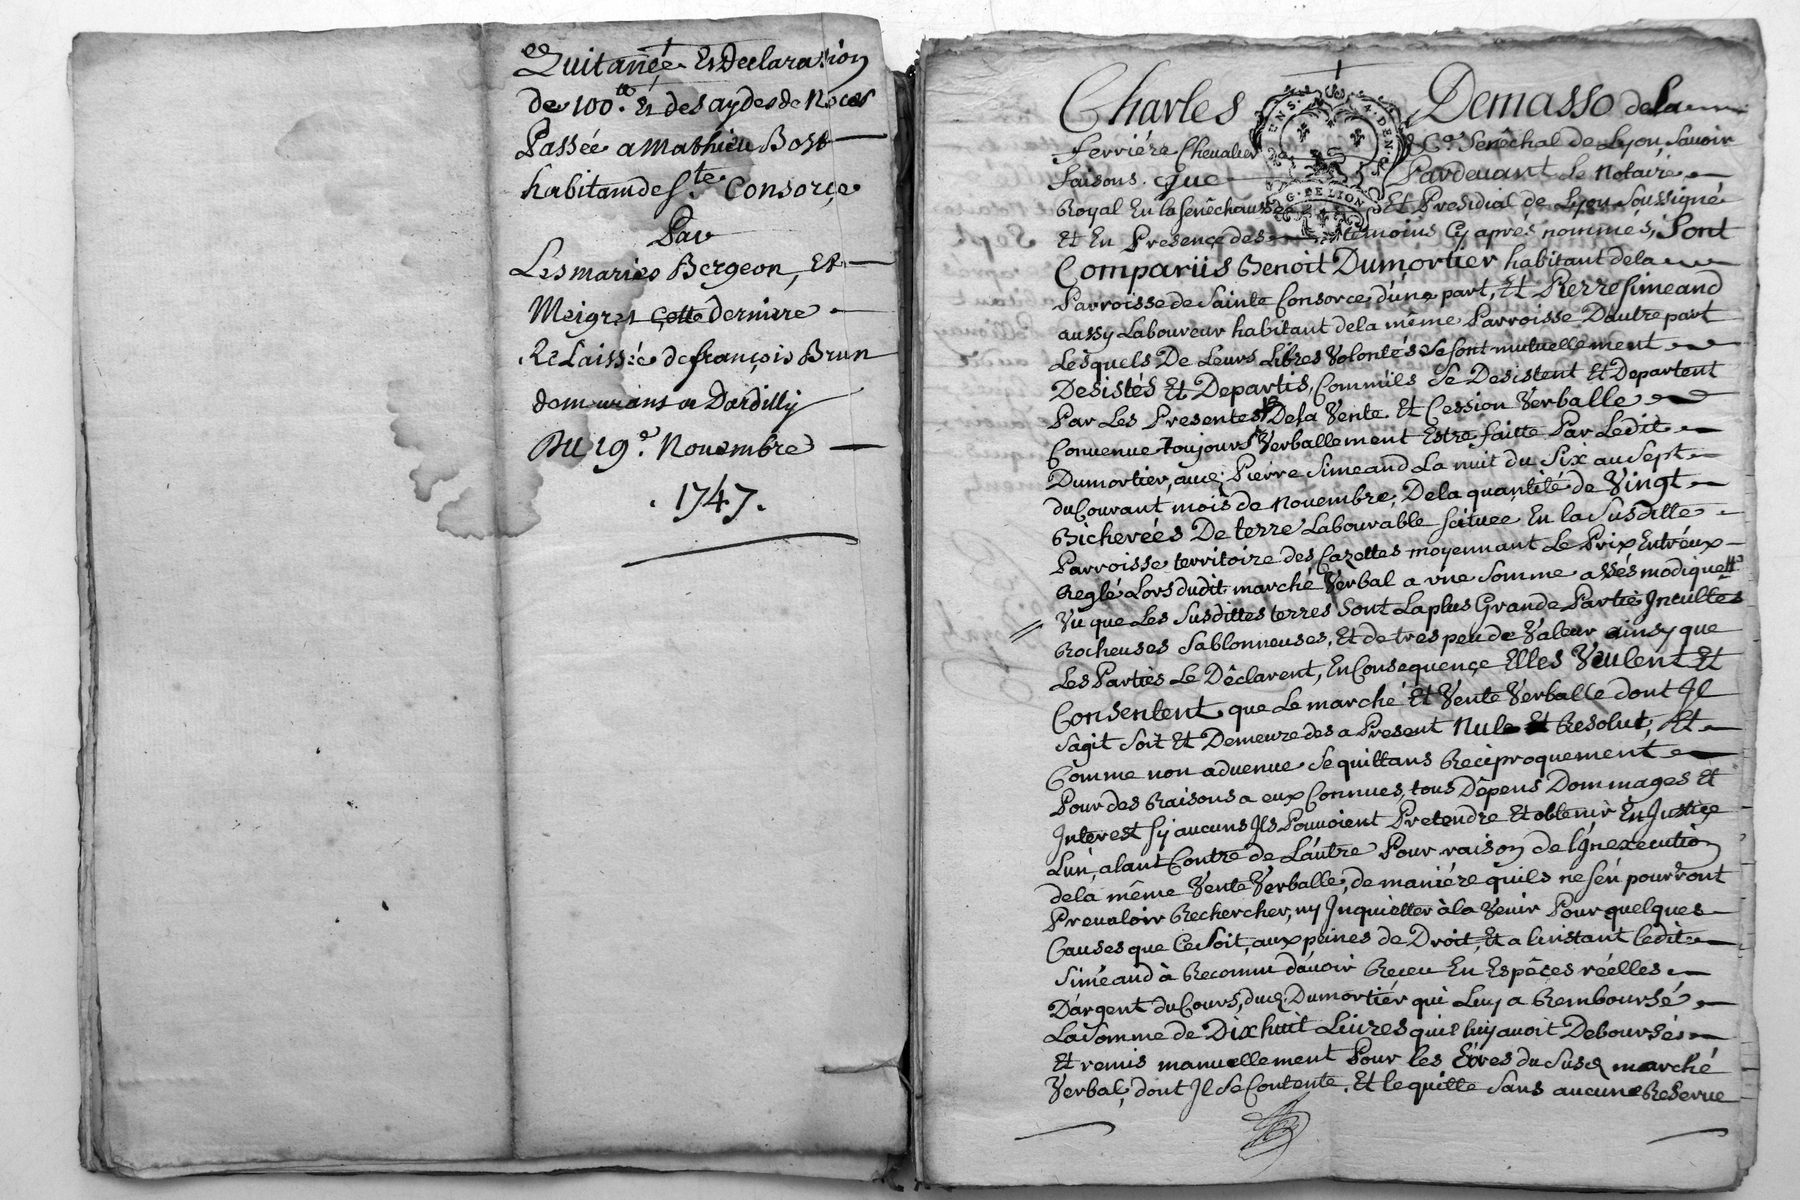 Quitancé Et Declaration
de 100.tt Et des aydes de Noces
Passée a Mathieu Bost
habitant de Ste. Consorçe
Par
Les mariés Bergeon, Et
Meigret cette derniere
Relaissée de françois Brun
demeurans a Dardilly
Du 19e. Novembre
. 1747 .
Charles Demasso de la
ferriére Chevalier Senêchal de Lyon, Savoir
faisons. que Pardevant Le Notaire
Royal En la senêchaussée Et Presidial de Lyon Soussigné
Et En Presençe des temoins Cy aprés nommés, Sont
Compariis Benoit Dumortier habitant de la
Parroisse de Sainte Consorce d'une part, Et Pierre Simeand
aussy Laboureur habitant de la même Parroisse D'autre part
Lesquels De Leurs Libres Volontés Se sont mutuellement
Desistés Et Departis, Comm'ils Se Desistent Et Departent
Par Les Presentes De la Vente Et Cession Verballe
Convenue toujours Verballement Estre faitte Par Ledit
Dumortier, aud. Pierre Simeand La nuit du Six au Sept
du Courant mois de Novembre, De la quantité de Vingt
Bicherées De terre Labourable scituee En la Susditte
Parroisse territoire des Cazettes moyennant Le Prix Entr'eux
Reglé Lors dudit marché Verbal a vne Somme assés modique
Vu que Les Susdittes terres Sont La plus Grande Partie Jncultes
Rocheuses Sablonneuses, Et de tres peu de Valeur ainsy que
Les Parties Le Dêclarent, En Consequençe Elles Veulent Et
Consentent que Le marché Et Vente Verballe dont Jl
s'agit Soit Et Demeure des a Present Nule Et Resolut, Et
Comme non advenue Se quittans Reciproquement
Pour des Raisons a eux Connues, tous Dêpens Dommages Et
Jnterest sy aucuns Jls Pouvoient Pretendre Et obtenir En Justice
L'un, a lant Contre de L'autre Pour raison de l'Jnexécution
de la même Vente Verballe, de maniére qu'ils ne s'en pourront
Prevaloir Rechercher, ny Jnquietter à la Venir Pour quelques
Causes que Ce Soit, aux peines de Droit, Et a linstant ledit
Siméand à Reconnu d'avoir Receu En Espêces réelles
D'argent du Cours, dud. Dumortiér qui Luy a Remboursé
La Somme de Dix huit Livres qu'il luy avoit Deboursés
Et remis manuellement Pour les Etres du Susd marché
Verbal, dont Jl Se Contente, Et le quitte Sans aucune Reserve